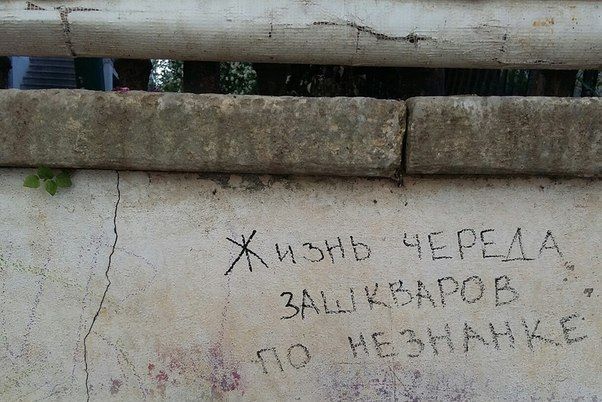 Жизнь ЧЕРЕДА
ЗАШКВАРОВ
ПО НЕЗНАНКЕ